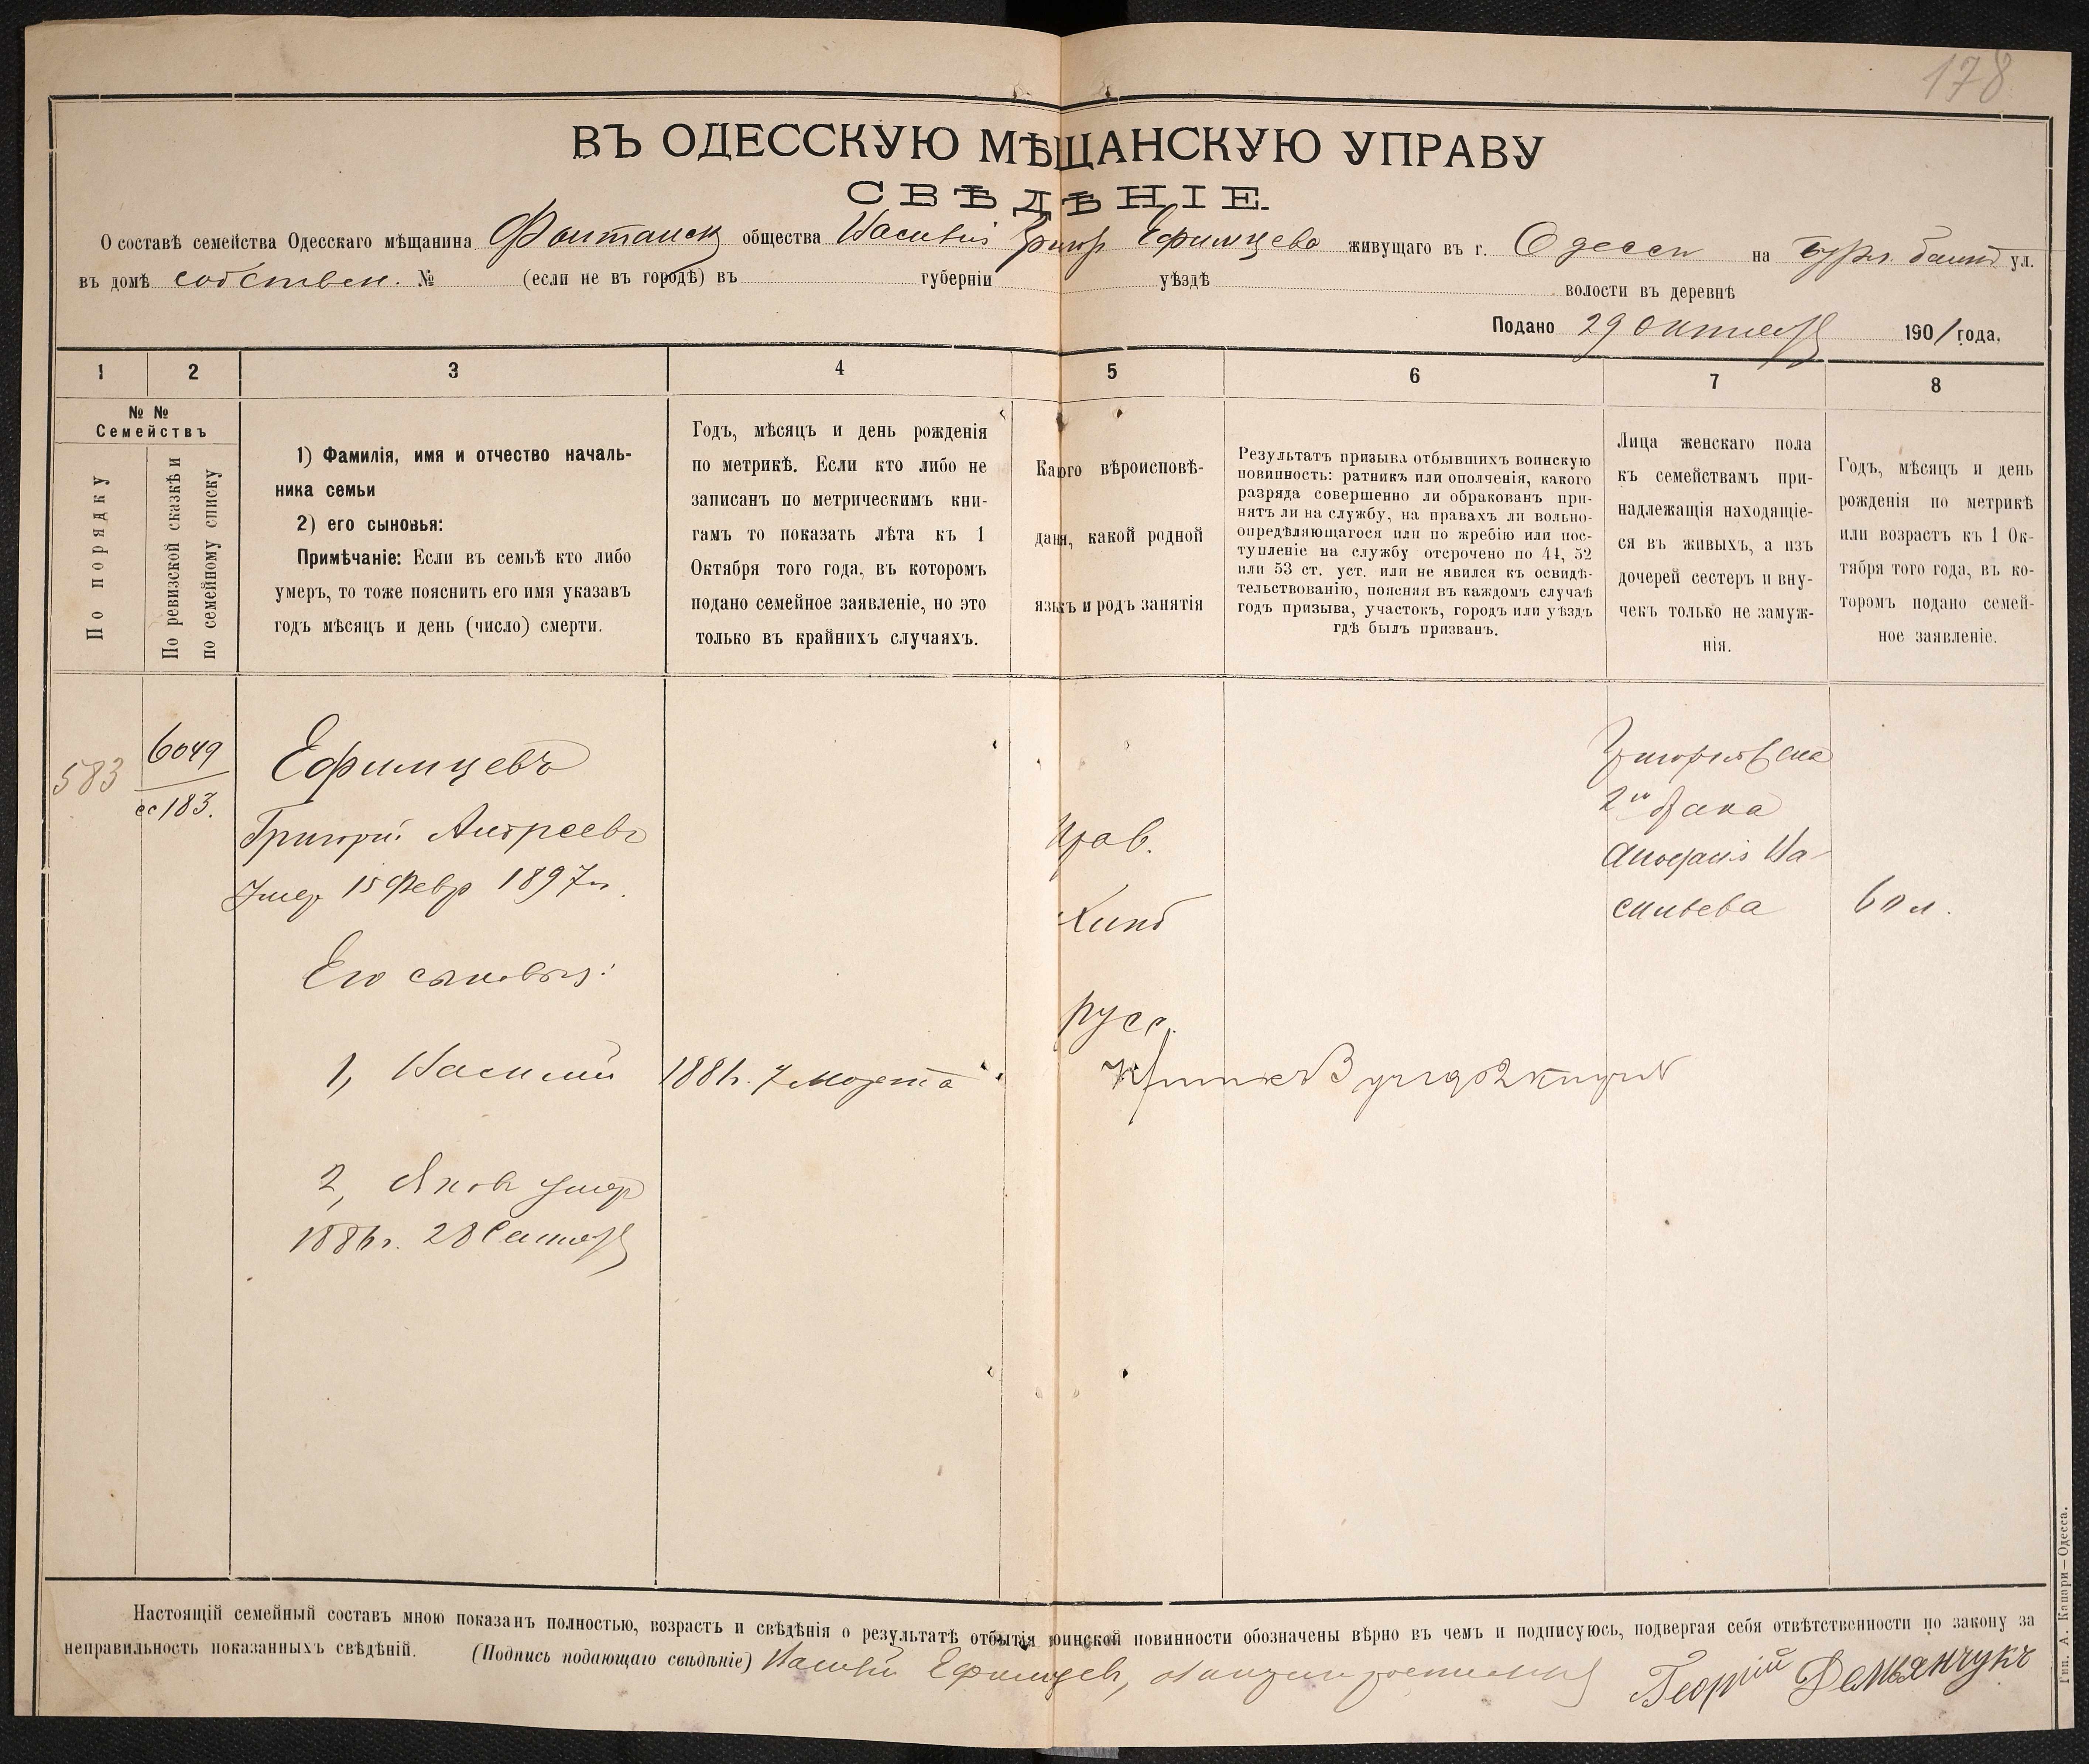 178
ВЪ ОДЕССКУЮ МѢЩАНСКУЮ УПРАВУ
СВѢДѢНІЕ.
О составѣ семейства Одесскаго мѣщанина Фонтанск общества Василій Григор Ефимцева живущаго въ г. Одессѣ на ул.
въ домѣ собствен. № (если не въ городѣ) въ губерніи уѣздѣ волости въ деревнѣ
Подано 29 Октября 1901 года.
1 2 3 4 5 6 7 8
№ №
Семействъ
По порядку
По ревизской сказкѣ и
по семейному списку
1) Фамилія, имя и отчество началь-
ника семьи
2) его сыновья:
Примѣчаніе: Если въ семьѣ кто либо
умеръ, то тоже пояснить его имя указавъ
годъ мѣсяцъ и день (число) смерти.
Годъ, мѣсяцъ и день рожденія
по метрикѣ. Если кто либо не
записанъ по метрическимъ кни-
гамъ то показать лѣта къ 1
Октября того года, въ которомъ
подано семейное заявленіе, но это
только въ крайнихъ случаяхъ.
Какого вѣроисповѣ-
данія, какой родной
языкъ и родъ занятія
Результатъ призыва отбывшихъ воинскую
повинность: ратникъ или ополченія, какого
разряда совершенно ли обракованъ при-
нятъ ли на службу, на правахъ ли вольно-
опредѣляющагося или по жребію или пос-
тупленіе на службу отсрочено по 44, 52
или 53 ст. уст. или не явился къ освидѣ-
тельствованію, поясняя въ каждомъ случаѣ
годъ призыва, участокъ, городъ или уѣздъ
гдѣ былъ призванъ.
Лица женскаго пола
къ семействамъ при-
надлежащія находящіе-
ся въ живыхъ, а изъ
дочерей сестеръ и вну-
чекъ только не замуж-
нія.
Годъ, мѣсяцъ и день
рожденія по метрикѣ
или возрастъ къ 1 Ок-
тября того года, въ ко-
торомъ подано семей-
ное заявленіе.
583
6049
сс 183.
Ефимцевъ
Григорій Андреевъ
Умер 15 Февр 1897 г.
Его сыновья:
1, Василій 1881 г. 7 Марта
2, Яковъ умер
1886 г. 28 Сентяб
Прав.
русс.
Григорьева жена
2го брака
Ва-
сильева
60 л.
Настоящій семейный составъ мною показанъ полностью, возрастъ и свѣдѣнія о результатѣ отбытія воинской повинности обозначены вѣрно въ чемъ и подписуюсь, подвергая себя отвѣтственности по закону за
неправильность показанныхъ свѣдѣній. (Подпись подающаго свѣдѣніе) Василій Ефимцевъ, Георгій Демьянчукъ
Тип. А. Кашари—Одесса.